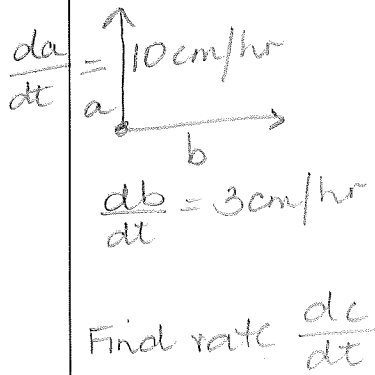 da/dt = 10 cm/hr
a
b
db/dt = 3 cm/hr
Find rate dc/dt